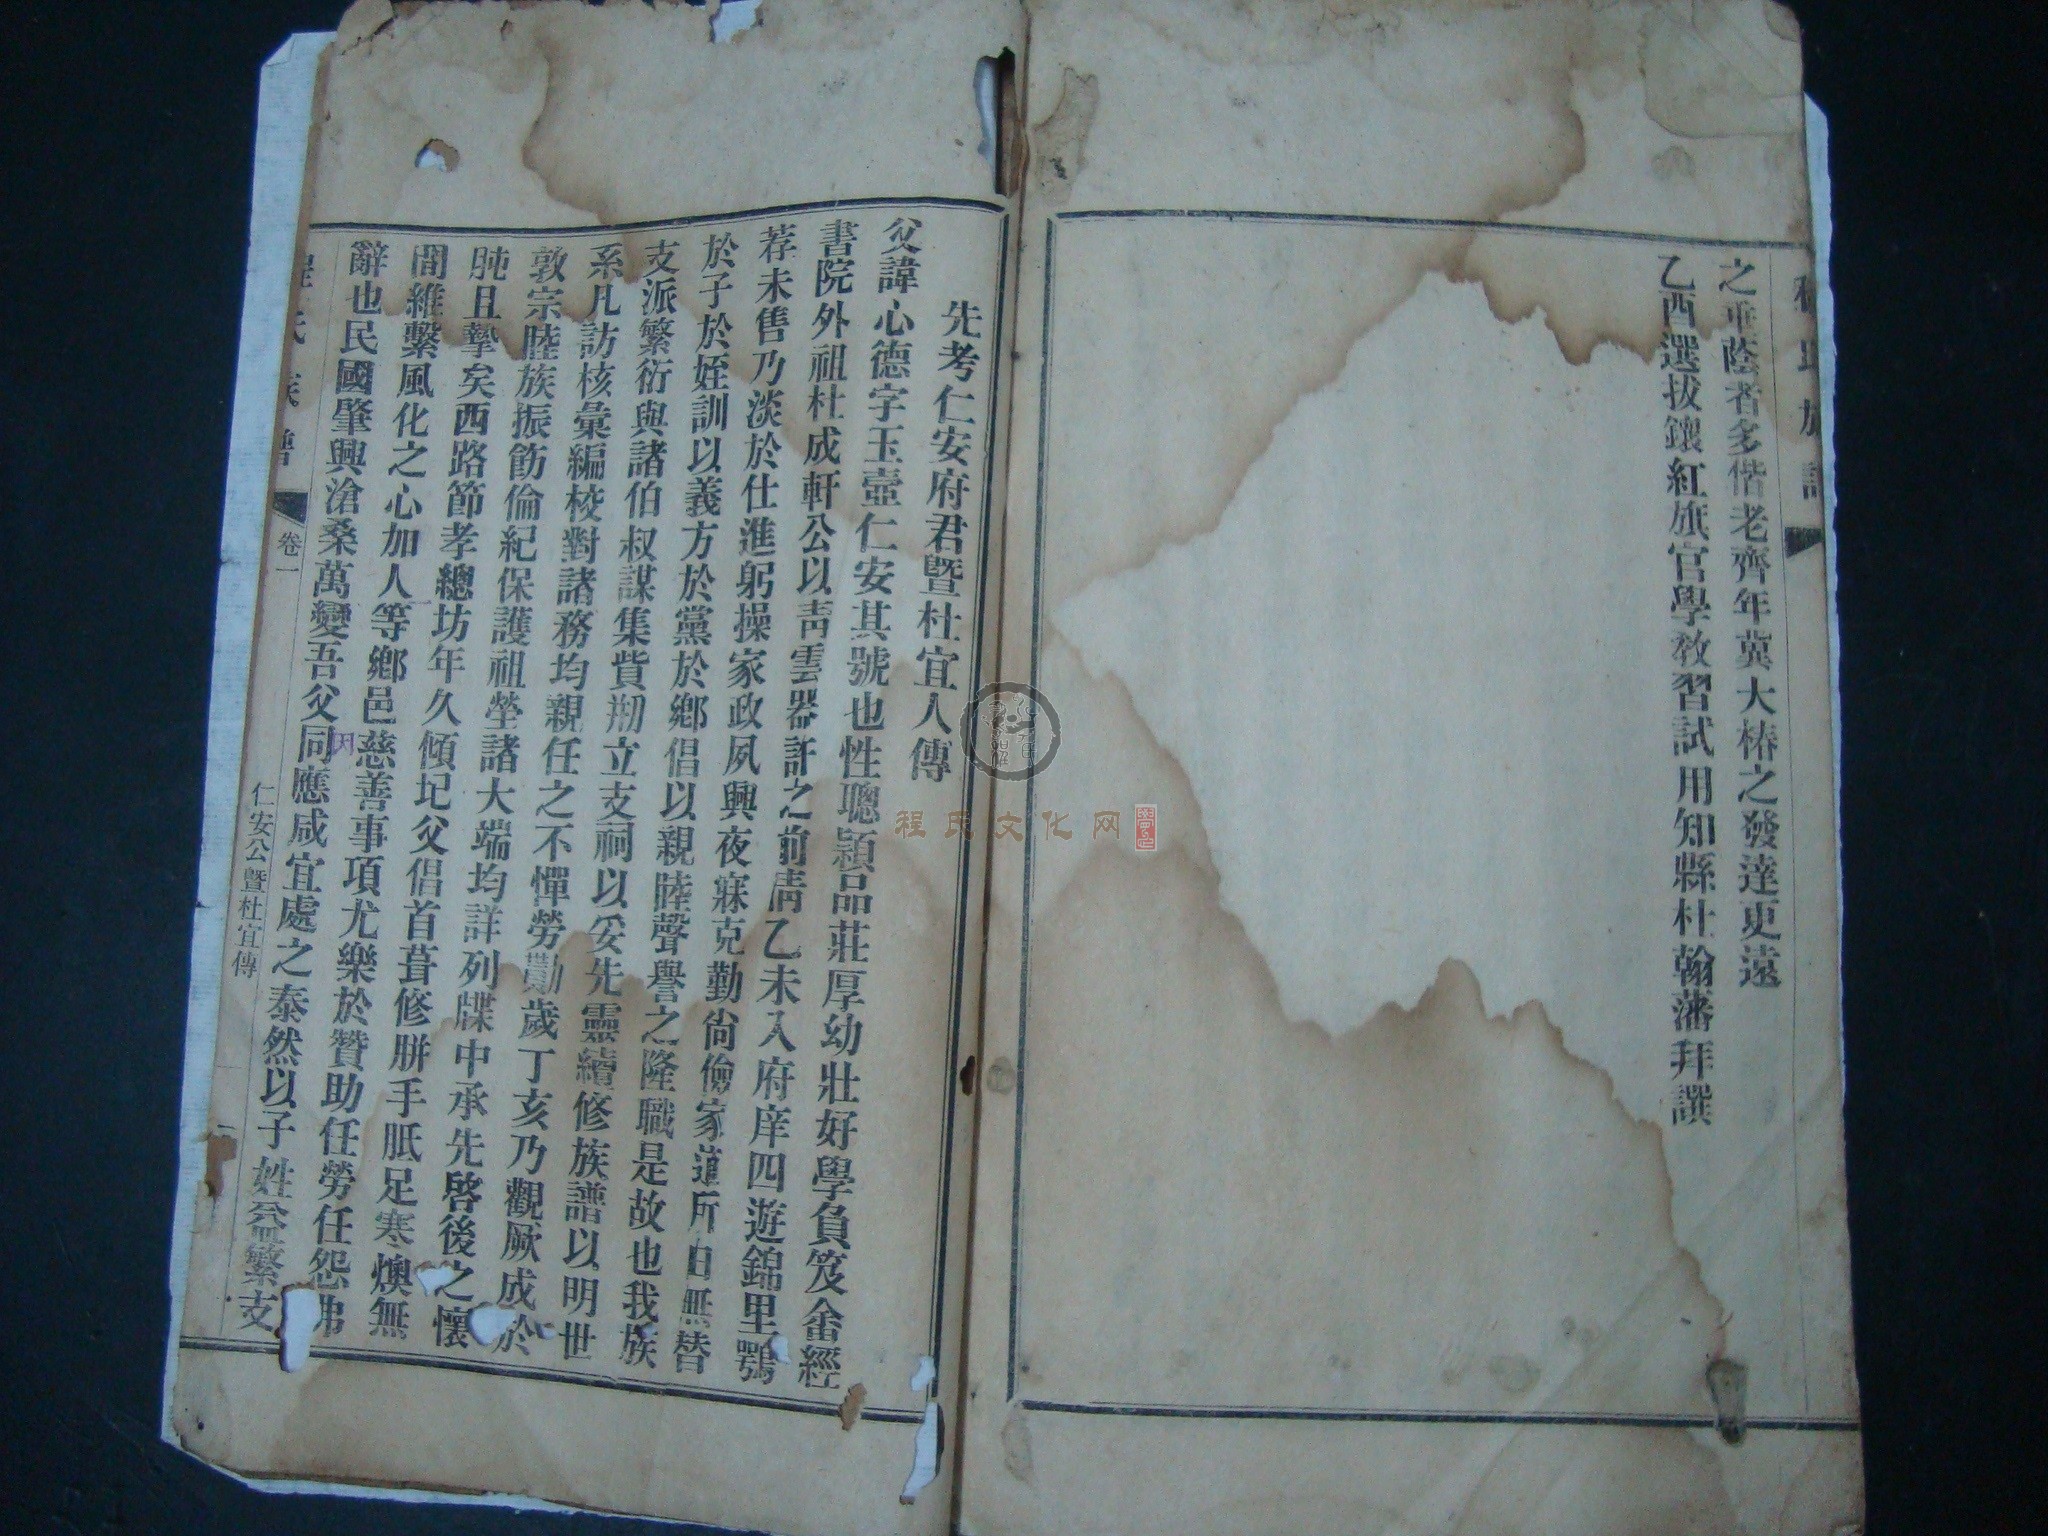 之垂蔭者多偕老齊年冀大椿之發達更遠
乙酉選拔鑲紅旗官學教習試用知縣杜翰藩拜譔
先考仁安府君曁杜宜人傳
父諱心德字玉壼仁安其號也性聰穎品莊厚幼壯好學負笈金經
書院外祖杜成軒公以靑雲器許之前淸乙未入府庠四遊錦里鶚
荐未售乃淡於仕進躬操家政夙興夜寐克勤尙儉家道所由無替
於子於姪訓以義方於黨於鄕倡以親睦聲譽之隆職是故也我族
支派繁衍與諸伯叔謀集貲刱立支祠以妥先靈續修族譜以明世
系凡訪核彙編校對諸務均親任之不憚勞勩歲丁亥乃觀厥成於
敦宗睦族振飭倫紀保護祖塋諸大端均詳列牒中承先啓後之懷
肫且摯矣西路節孝總坊年久傾圮父倡首葺修胼手胝足寒燠無
間維繫風化之心加人等鄕邑慈善事項尤樂於贊助任勞任怨弗
辭也民國肇興滄桑萬變吾父同應咸宜處之泰然以子姓益繁支
因
程氏族譜
卷一
仁安公曁杜宜傳
一
程氏文化网